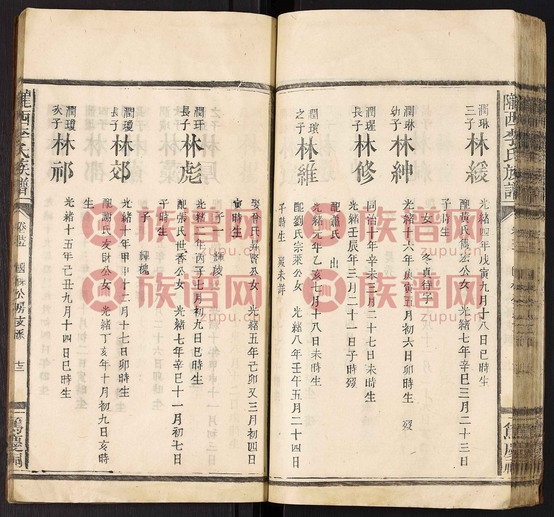 隴西李氏族譜
篤慶祠
潤琳三子
林緩
光緒四年戊寅九月十八日巳時生
子時生
女 冬貞待字
潤琳幼子
林紳
光緒十六年庚寅五月初六日卯時生 歿
潤瑾長子
林修
同治十年辛未三月二十七日未時生
光緒壬辰年三月二十一日子時歿
配蕭氏 出
潤瓊之子
林維
光緒元年乙亥七月十八日未時生
配劉氏宗萊公女 光緒八年壬午五月二十四日
子時生 歿未詳
光緒五年己卯又三月初四日
寅時生
子一
潤珂長子
林彪
光緒二年丙子七月初九日巳時生
配張氏世香公女 光緒七年辛巳十一月初七日
子時生
子 輝槐
潤瓊長子
林郊
光緒十年甲申十二月十七日卯時生
光緒丁亥年十月初九日亥時生
次子
林祁
光緒十五年己丑九月十四日巳時生
隴西李氏族譜
公房支派
十三
篤慶祠
族谱网
zupu.cn